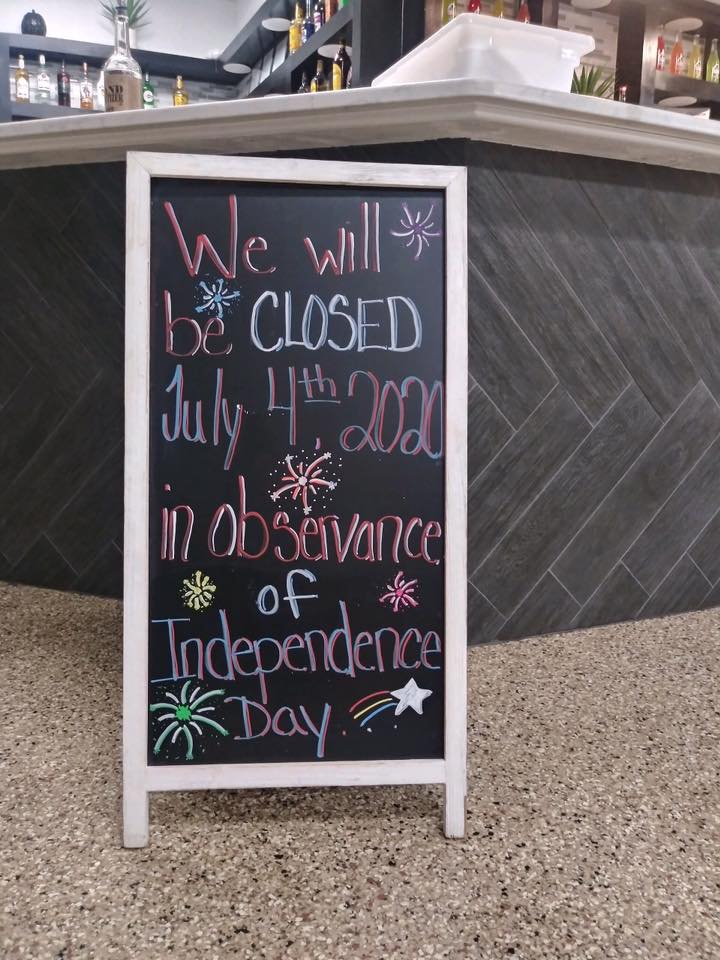 We will
be CLOSED
July 4th, 2020
in observance
of
Independence
Day.